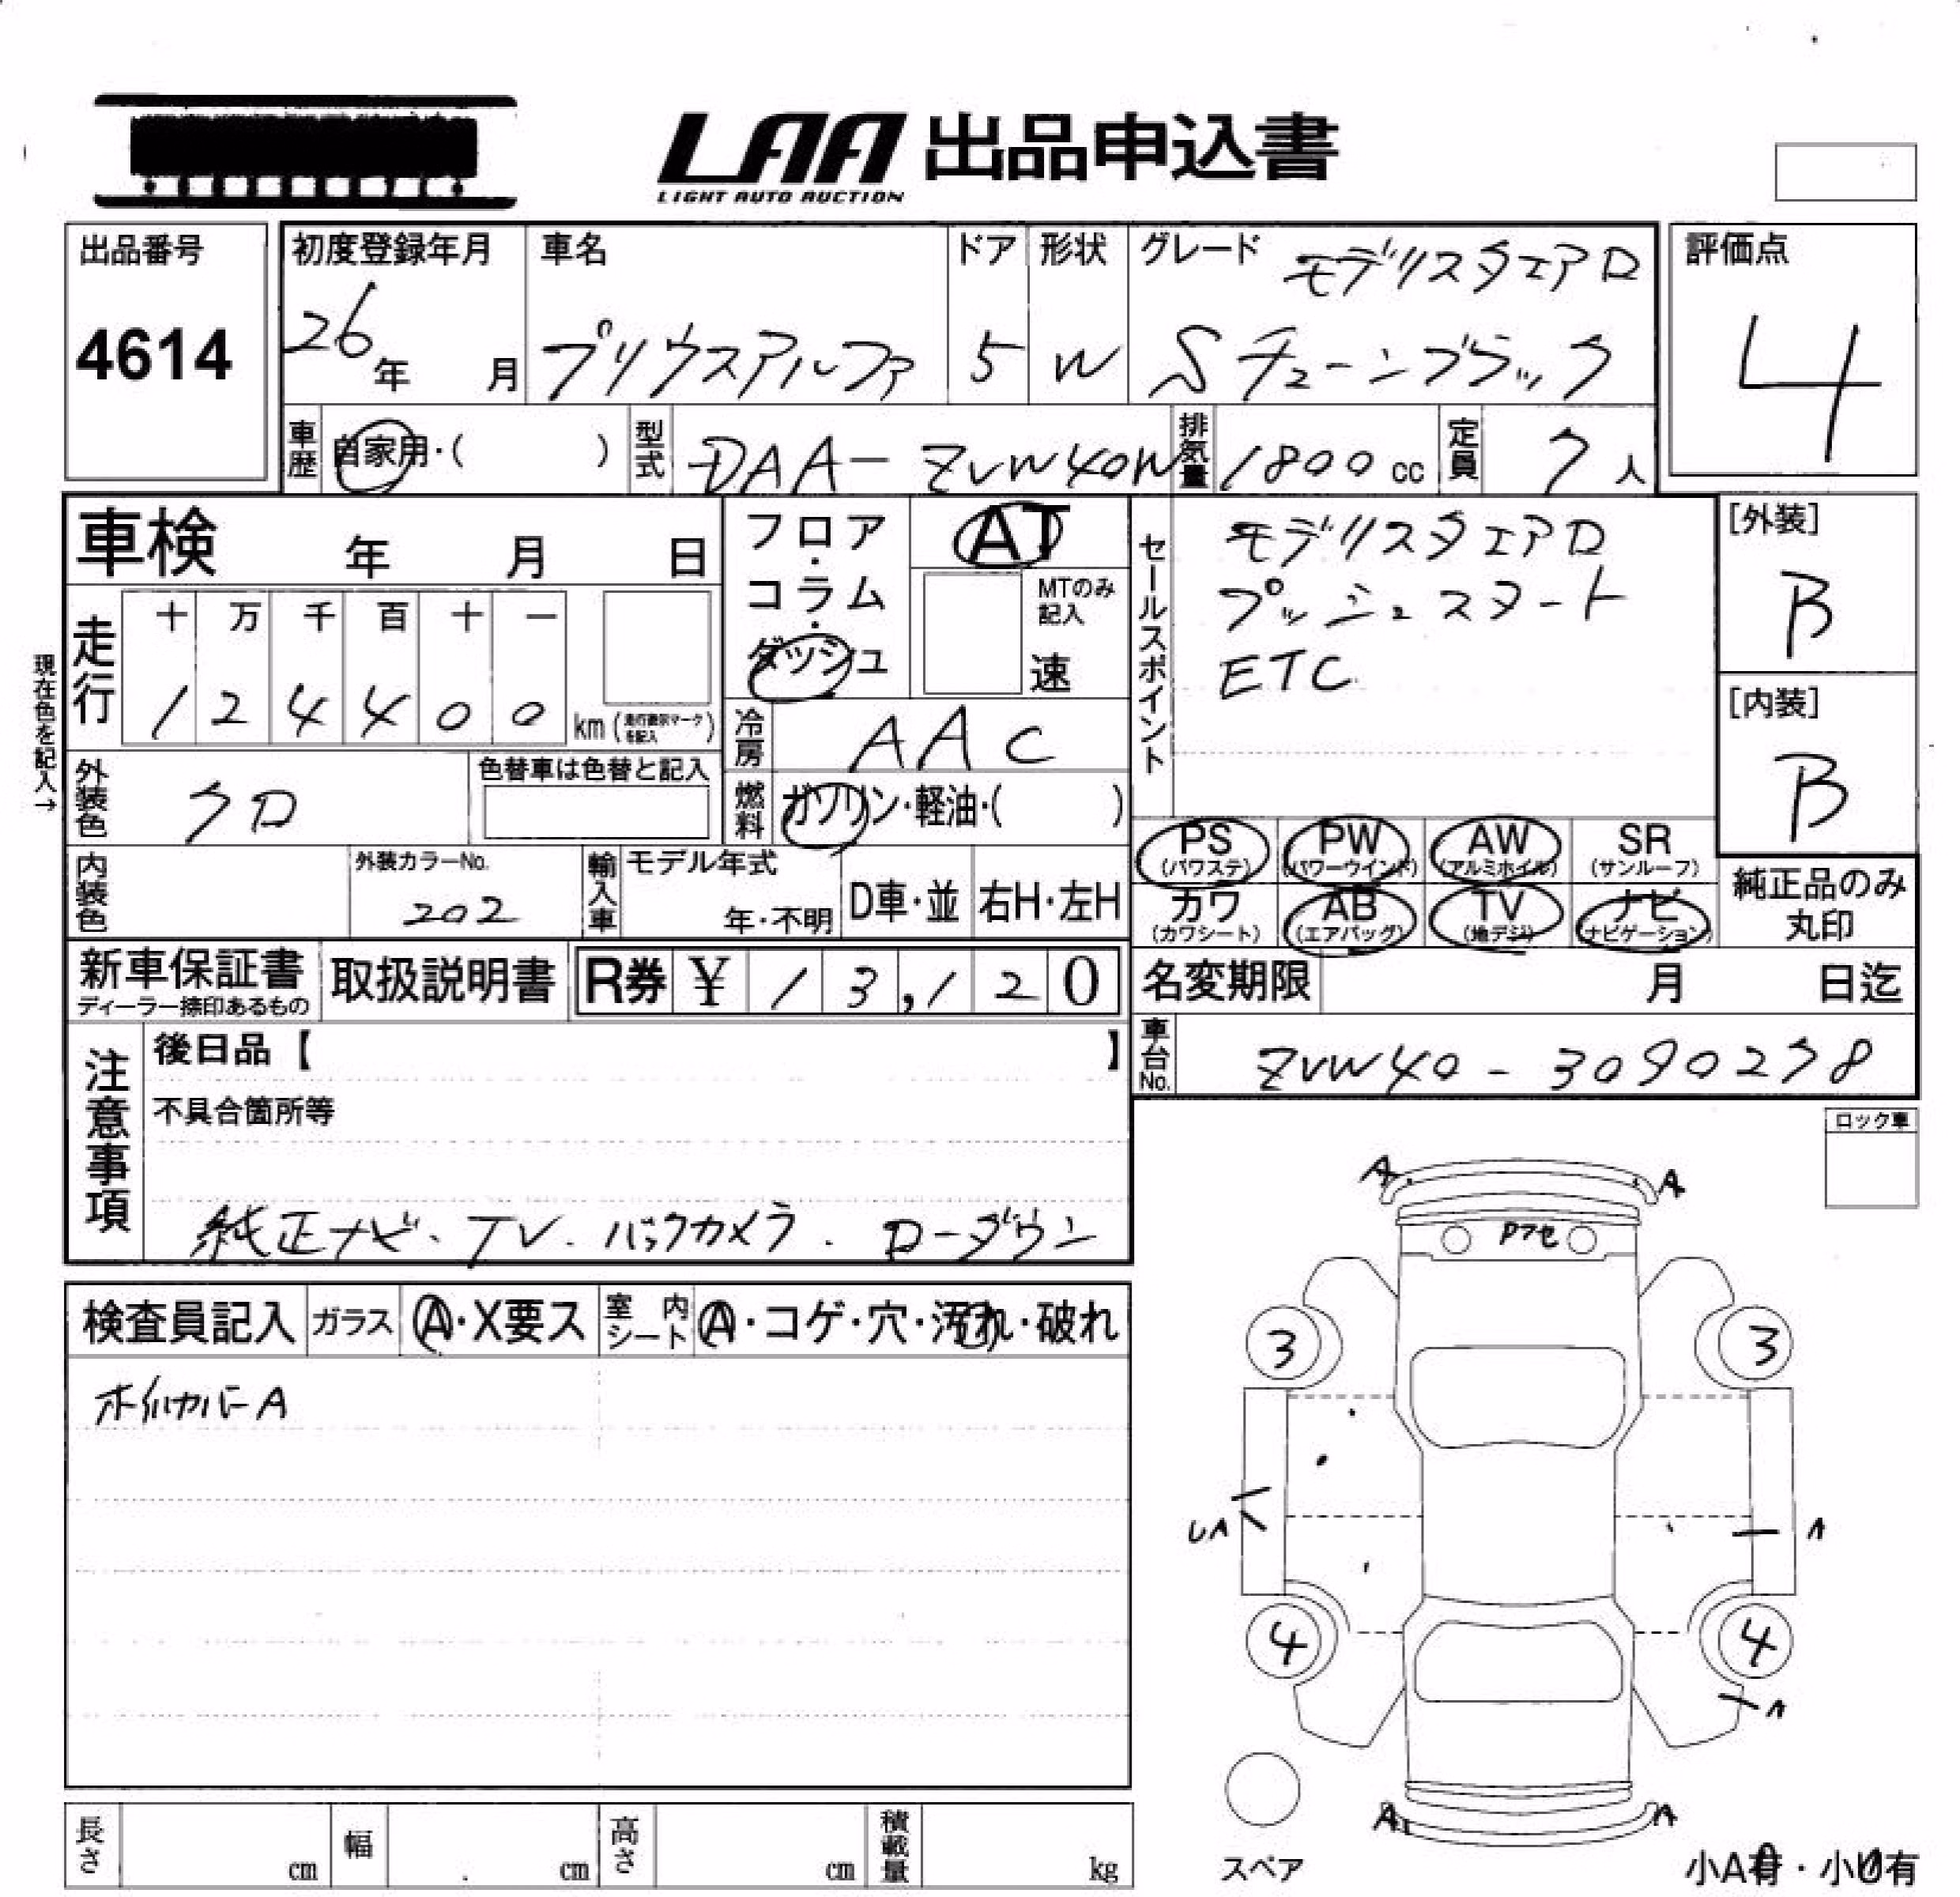 LAA 出品申込書
LIGHT AUTO AUCTION
出品番号
4614
初度登録年月
26年 月
車名
プリウスアルファ
ドア
5
形状
W
グレード モデリスタエアロ
Sチューンブラック
評価点
4
車歴 自家用・( )
型式 DAA-ZVW40W
排気量 1800cc
定員 7人
車検 年 月 日
フロア・コラム・ダッシュ
AT
MTのみ記入
速
セールスポイント
モデリスタエアロ
プッシュスタート
ETC
[外装]
B
[内装]
B
現在色を記入→
走行
十 万 千 百 十 一
1 2 4 4 0 0 km (走行表示マークを記入)
冷房 AAC
外装色 クロ
色替車は色替と記入
燃料 ガソリン・軽油・( )
PS (パワステ)
PW (パワーウインド)
AW (アルミホイル)
SR (サンルーフ)
カワ (カワシート)
AB (エアバッグ)
TV (地デジ)
ナビ (ナビゲーション)
純正品のみ丸印
内装色
外装カラーNo.
202
輸入車
モデル年式
年・不明
D車・並
右H・左H
新車保証書
ディーラー捺印あるもの
取扱説明書
R券 ¥ 13,120
名変期限 月 日迄
車台No. ZVW40-3090278
注意事項
後日品【 】
不具合箇所等
純正ナビ、TV. バックカメラ. ローダウン
ロック車
検査員記入
ガラス A・X要ス
室内シート A・コゲ・穴・汚れ・破れ
ホイルカバーA
A A
Pアセ
3 3
UA A
4 4
A
A A
スペア
小A有・小U有
長さ cm
幅 cm
高さ cm
積載量 kg